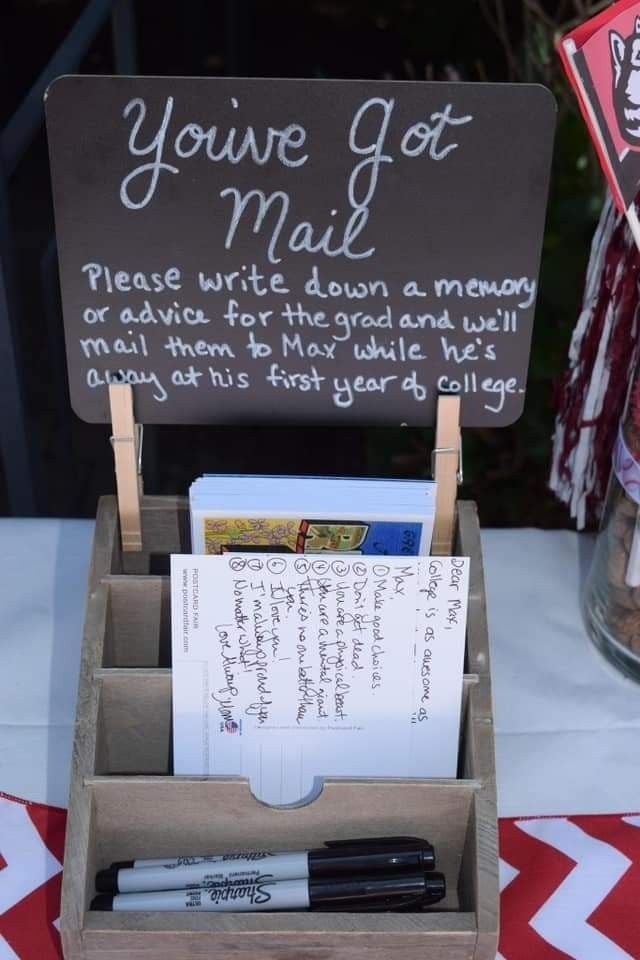 You've Got
Mail
Please write down a memory
or advice for the grad and we'll
mail them to Max while he's
away at his first year of college.
Dear Max,
College is as awesome as
Max,
① Make good choices.
② Don't get dead.
③ You are a physical beast.
④ You are a mental giant.
⑤ There's no one better than
you.
⑥ I love you!
⑦ I'm always proud of you
⑧ No matter what!
Love Always, Mom
POSTCARD FAIR
www.postcardfair.com
Sharpie
Permanent Marker
Sharpie